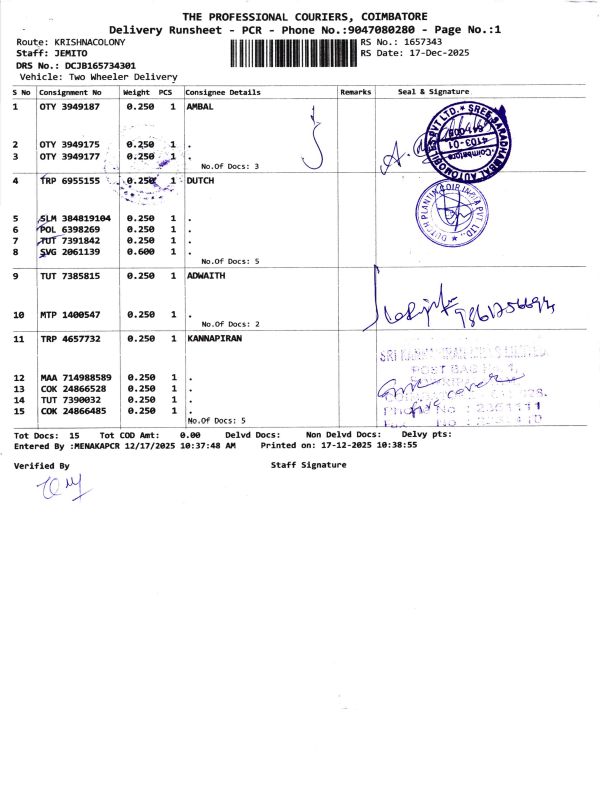 THE PROFESSIONAL COURIERS, COIMBATORE
Delivery Runsheet - PCR - Phone No.:9047080280 - Page No.:1
Route: KRISHNACOLONY RS No.: 1657343
Staff: JEMITO RS Date: 17-Dec-2025
DRS No.: DCJB165734301
Vehicle: Two Wheeler Delivery
S No Consignment No Weight PCS Consignee Details Remarks Seal & Signature
1 OTY 3949187 0.250 1 AMBAL
2 OTY 3949175 0.250 1 .
3 OTY 3949177 0.250 1 .
No.Of Docs: 3
4 TRP 6955155 0.250 1 DUTCH
5 SLM 384819104 0.250 1 .
6 POL 6398269 0.250 1 .
7 TUT 7391842 0.250 1 .
8 SVG 2061139 0.600 1 .
No.Of Docs: 5
9 TUT 7385815 0.250 1 ADWAITH
10 MTP 1400547 0.250 1 .
No.Of Docs: 2
11 TRP 4657732 0.250 1 KANNAPIRAN
12 MAA 714988589 0.250 1 .
13 COK 24866528 0.250 1 .
14 TUT 7390032 0.250 1 .
15 COK 24866485 0.250 1 .
No.Of Docs: 5
Tot Docs: 15 Tot COD Amt: 0.00 Delvd Docs: Non Delvd Docs: Delvy pts:
Entered By :MENAKAPCR 12/17/2025 10:37:48 AM Printed on: 17-12-2025 10:38:55
Verified By Staff Signature